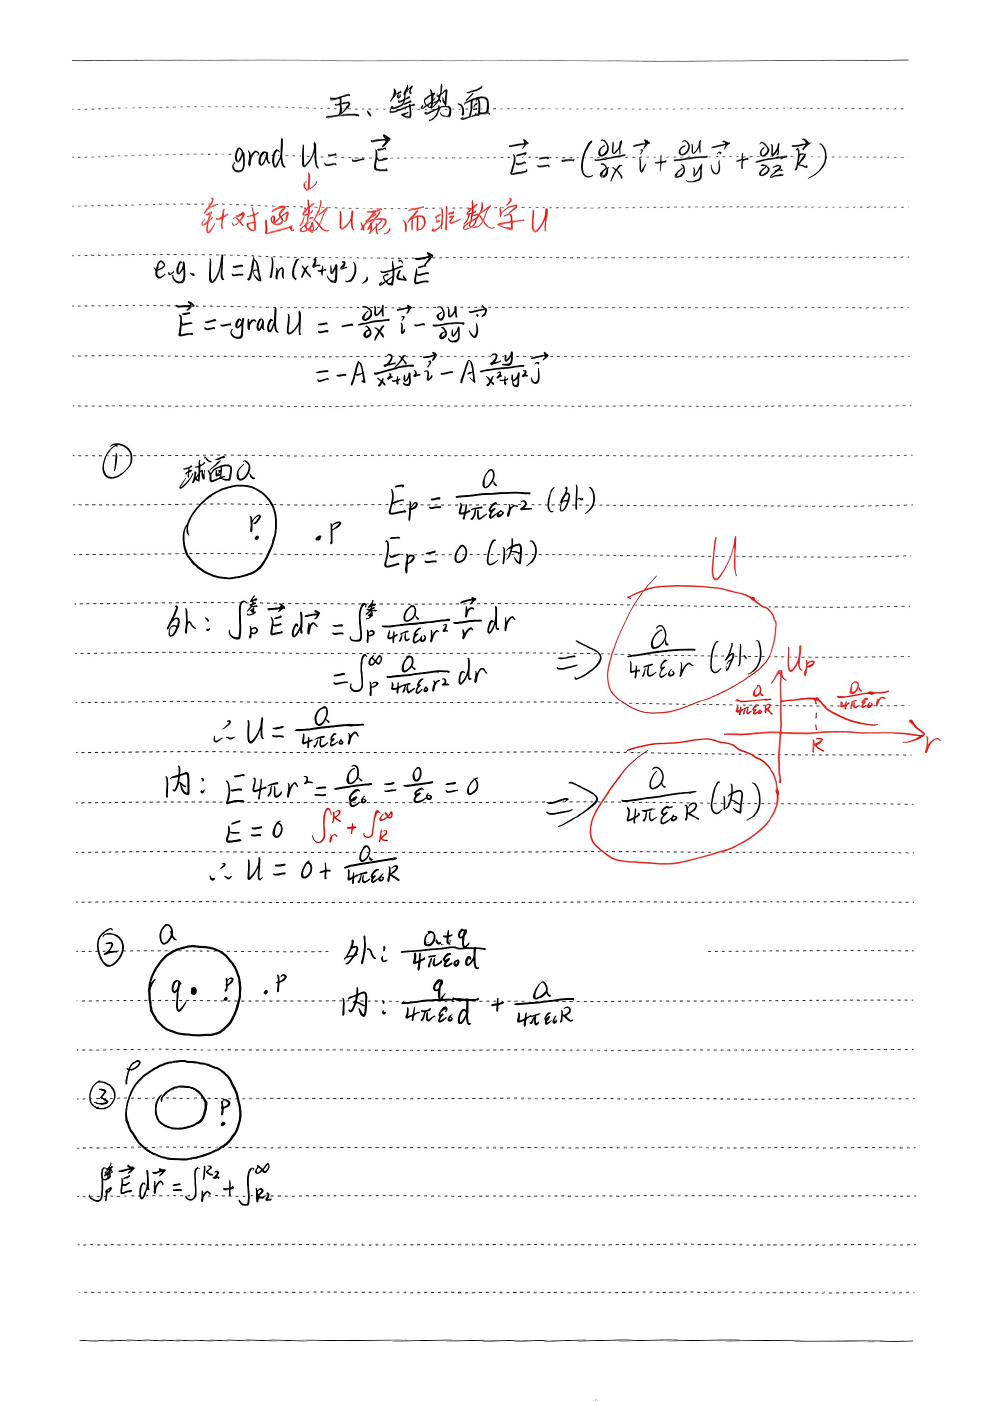 五、等势面
grad U = -E⃗    E⃗ = -(∂u/∂x i⃗ + ∂u/∂y j⃗ + ∂u/∂z k⃗)
↓
针对函数U而言,而非数字U
e.g. U = A ln(x²+y²), 求E⃗
E⃗ = -grad U = -∂u/∂x i⃗ - ∂u/∂y j⃗
= -A 2x/(x²+y²) i⃗ - A 2y/(x²+y²) j⃗
①
球面Q
P    P
E_P = Q/(4πε₀r²) (外)
E_P = 0 (内)
外: ∫_P^参 E⃗ dr⃗ = ∫_P^参 Q/(4πε₀r²) r⃗/r dr
= ∫_P^∞ Q/(4πε₀r²) dr
∴ U = Q/(4πε₀r)
U
⇒ Q/(4πε₀r) (外)
U_P
Q/(4πε₀R)    Q/(4πε₀r)
R    r
内: E 4πr² = Q/ε₀ = 0/ε₀ = 0
E = 0    ∫_r^R + ∫_R^∞
∴ U = 0 + Q/(4πε₀R)
⇒ Q/(4πε₀R) (内)
② Q
q    P    P
外: (Q+q)/(4πε₀d)
内: q/(4πε₀d) + Q/(4πε₀R)
③ ρ
P
∫_P^参 E⃗ dr⃗ = ∫_r^R₂ + ∫_R₂^∞